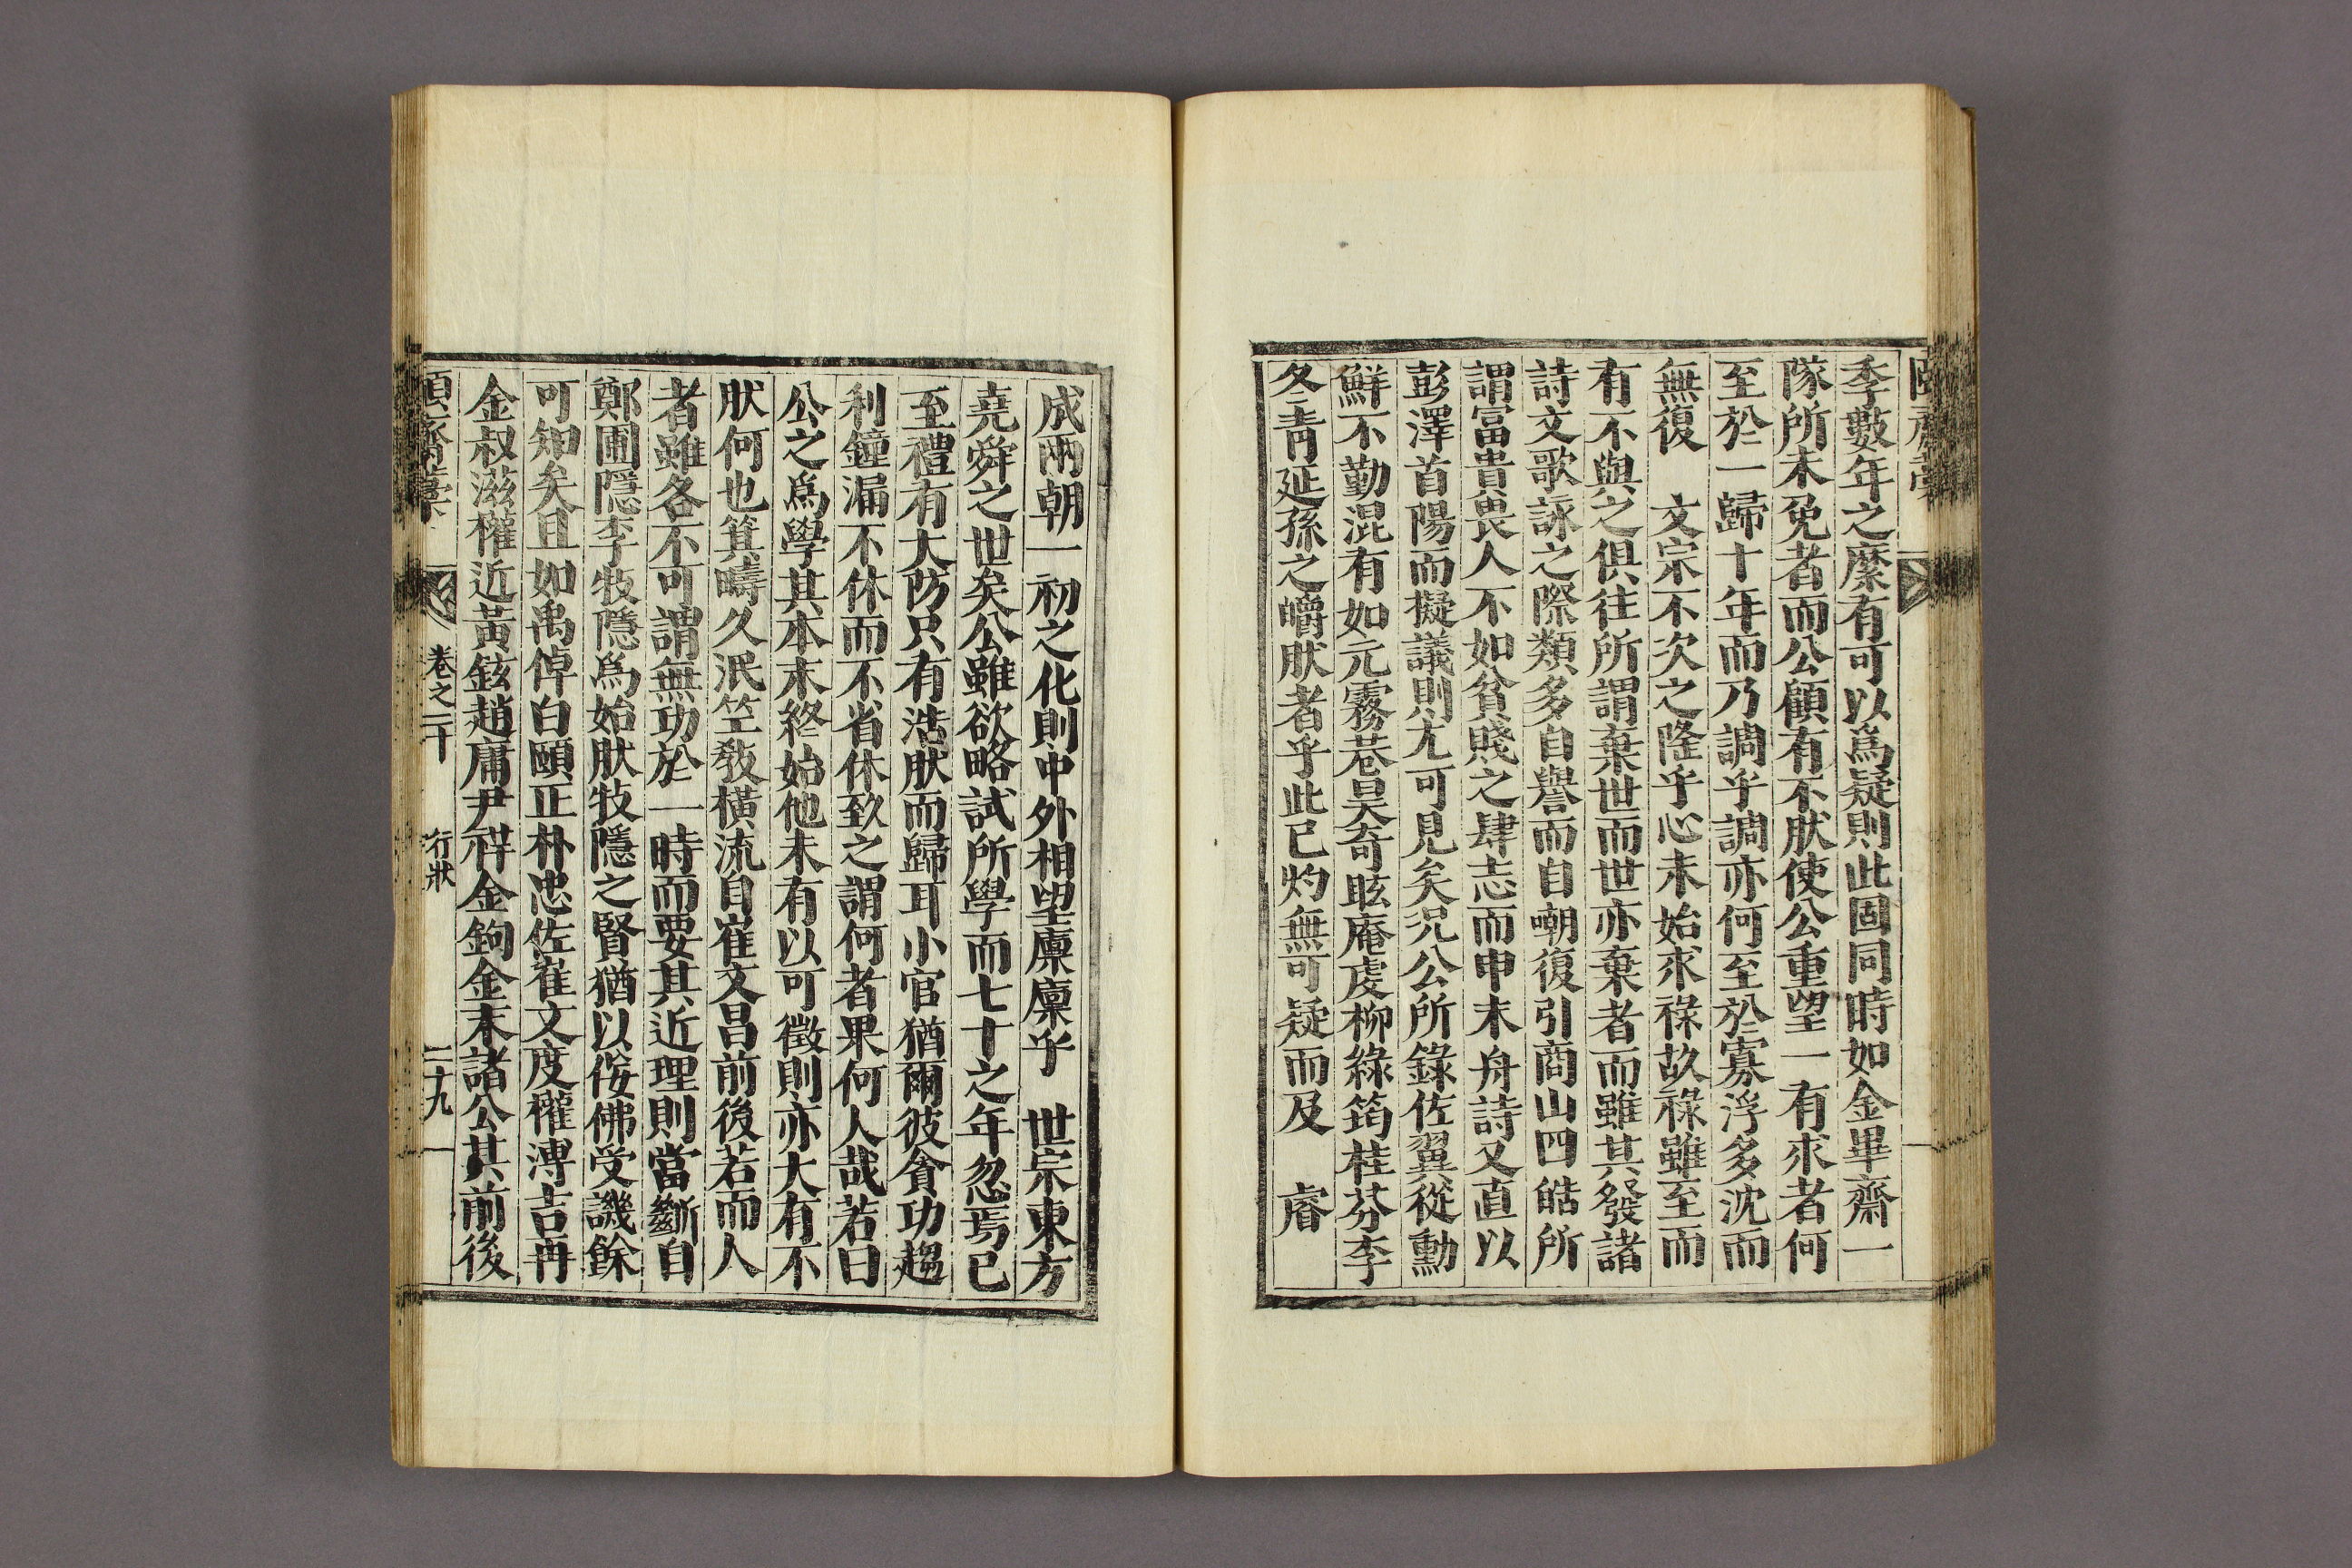 季數年之縻有可以爲疑則此固同時如金畢齋一
隊所未免者而公顧有不肰使公重望一有求者何
至於一歸十年而乃調乎調亦何至於寡浮多沈而
無復 文宗不次之隆乎心未始求祿故祿雖至而
有不與之俱往所謂棄世而世亦棄者而雖其發諸
詩文歌詠之際類多自譽而自嘲復引商山四皓所
謂富貴畏人不如貧賤之肆志而申末舟詩又直以
彭澤首陽而擬議則尤可見矣况公所錄佐翼從勳
鮮不勤混有如元霧巷昊奇眩庵虔柳綠筠桂芬李
冬靑延孫之皭肰者乎此已灼無可疑而及 睿
成兩朝一初之化則中外相望廩廩乎 世宗東方
堯舜之世矣公雖欲略試所學而七十之年忽焉已
至禮有大防只有浩肰而歸耳小官猶爾彼貪功趨
利鐘漏不休而不省休致之謂何者果何人哉若曰
公之爲學其本末終始他未有以可徵則亦大有不
肰何也箕疇久泯竺敎橫流自崔文昌前後若而人
者雖各不可謂無功於一時而要其近理則當斷自
鄭圃隱李牧隱爲始肰牧隱之賢猶以侫佛受譏餘
可知矣且如禹倬白頤正朴忠佐崔文度權溥吉冉
金叔滋權近黃鉉趙庸尹祥金鉤金末諸公其前後
卷之二十 行狀 二十九